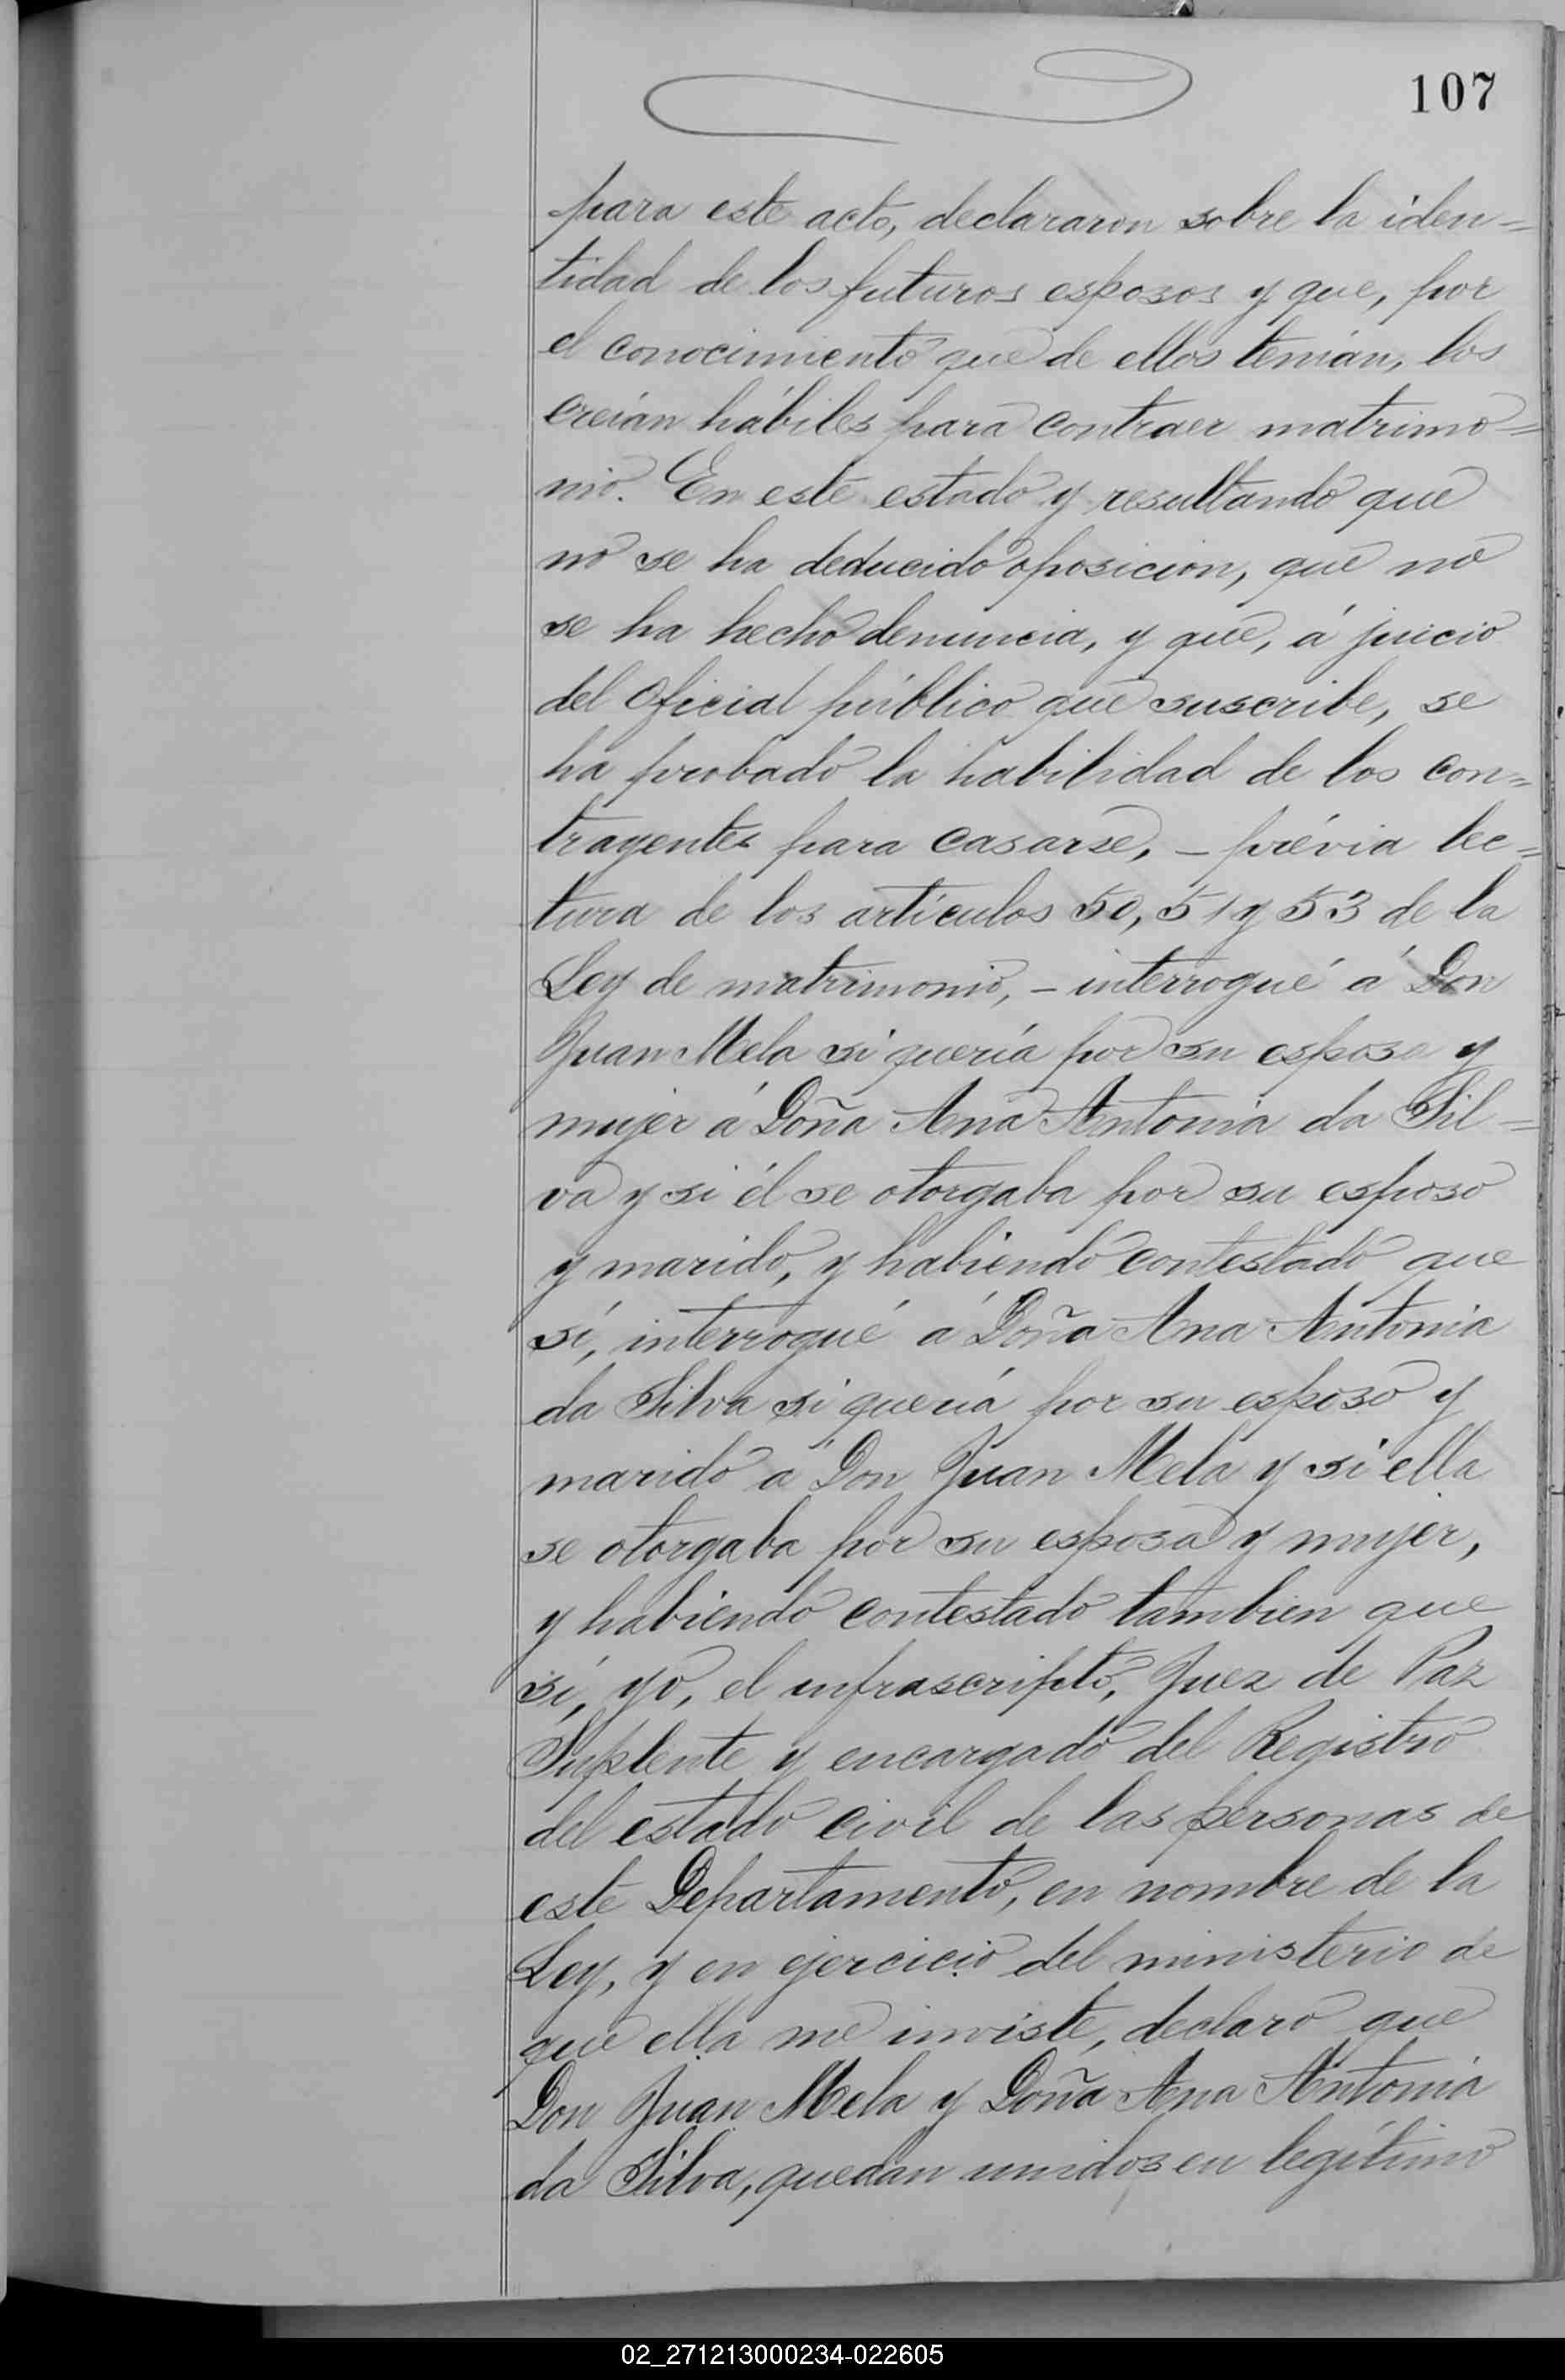 107
para este acto, declararon sobre la iden=
tidad de los futuros esposos y que, por
el conocimiento que de ellos tenían, los
creían hábiles para contraer matrimo=
nio. En este estado y resultando que
no se ha deducido oposicion, que no
se ha hecho denuncia, y que, á juicio
del oficial público que suscribe, se
ha probado la habilidad de los con=
trayentes para casarse, – prévia lec=
tura de los artículos 50, 51 y 53 de la
Ley de matrimonio, – interrogué á Don
Juan Mela si quería por su esposa y
mujer á Doña Ana Antonia da Sil=
va y si él se otorgaba por su esposo
y marido, y habiendo contestado que
sí, interrogué á Doña Ana Antonia
da Silva si quería por su esposo y
marido á Don Juan Mela y si ella
se otorgaba por su esposa y mujer,
y habiendo contestado tambien que
sí, yo, el infrascripto, Juez de Paz
Suplente y encargado del Registro
del estado civil de las personas de
este Departamento, en nombre de la
Ley, y en ejercicio del ministerio de
que ella me inviste, declaro que
Don Juan Mela y Doña Ana Antonia
da Silva, quedan unidos en legítimo
02_271213000234-022605